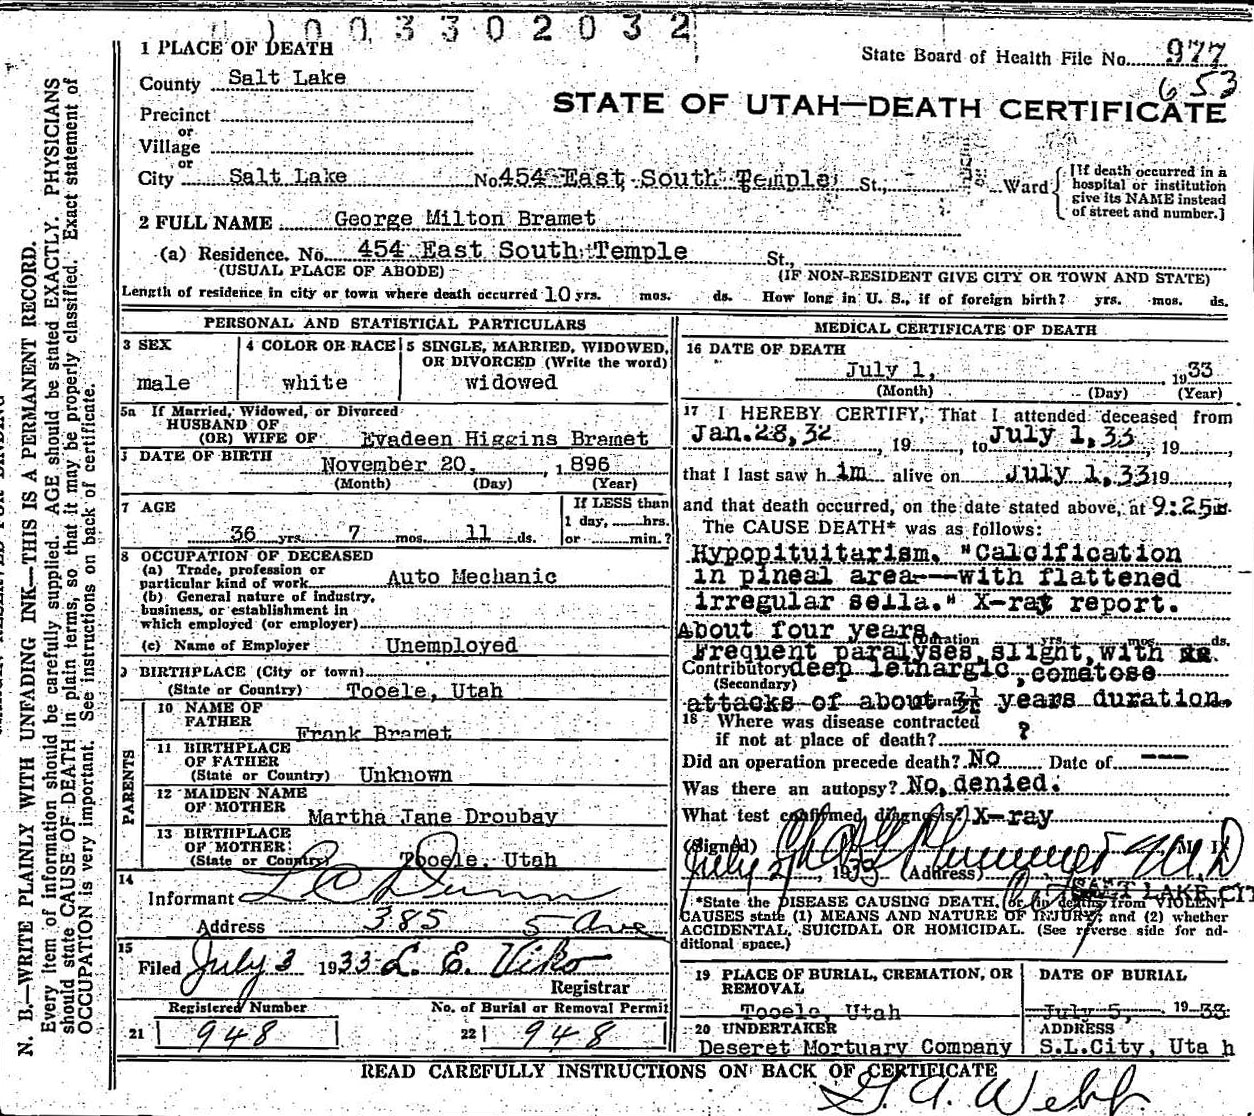 1003302032
1 PLACE OF DEATH
State Board of Health File No. 977
653
County Salt Lake
STATE OF UTAH—DEATH CERTIFICATE
Precinct
or
Village
or
City Salt Lake No. 454 East South Temple St., Ward
[If death occurred in a
hospital or institution
give its NAME instead
of street and number.]
2 FULL NAME George Milton Bramet
(a) Residence. No. 454 East South Temple St.,
(USUAL PLACE OF ABODE) (IF NON-RESIDENT GIVE CITY OR TOWN AND STATE)
Length of residence in city or town where death occurred 10 yrs. mos. ds. How long in U. S., if of foreign birth? yrs. mos. ds.
PERSONAL AND STATISTICAL PARTICULARS
3 SEX
male
4 COLOR OR RACE
white
5 SINGLE, MARRIED, WIDOWED,
OR DIVORCED (Write the word)
widowed
5a If Married, Widowed, or Divorced
HUSBAND OF
(OR) WIFE OF Evadeen Higgins Bramet
DATE OF BIRTH November 20, 1896
(Month) (Day) (Year)
7 AGE
36 yrs. 7 mos. 11 ds.
If LESS than
1 day, hrs.
or min.?
8 OCCUPATION OF DECEASED
(a) Trade, profession or
particular kind of work Auto Mechanic
(b) General nature of industry,
business, or establishment in
which employed (or employer)
(c) Name of Employer Unemployed
9 BIRTHPLACE (City or town)
(State or Country) Tooele, Utah
PARENTS
10 NAME OF
FATHER
Frank Bramet
11 BIRTHPLACE
OF FATHER
(State or Country) Unknown
12 MAIDEN NAME
OF MOTHER
Martha Jane Droubay
13 BIRTHPLACE
OF MOTHER
(State or Country) Tooele, Utah
14
Informant L C Dunn
Address 385 5 Ave
15
Filed July 3 1933 L. E. Viko
Registrar
Registered Number
21 948
No. of Burial or Removal Permit
22 948
MEDICAL CERTIFICATE OF DEATH
16 DATE OF DEATH
July 1, 1933
(Month) (Day) (Year)
17 I HEREBY CERTIFY, That I attended deceased from
Jan.28,32, 19 to July 1,33, 19
that I last saw h im alive on July 1,33 19
and that death occurred, on the date stated above, at 9:25
The CAUSE DEATH* was as follows:
Hypopituitarism. "Calcification
in pineal area---with flattened
irregular sella." X-ray report.
About four years
(Duration yrs. mos. ds.
Frequent paralyses, slight, with
Contributory deep lethargic, comatose
(Secondary)
attacks of about 3½ years duration.
18 Where was disease contracted
if not at place of death? ?
Did an operation precede death? No Date of ---
Was there an autopsy? No, denied.
What test confirmed diagnosis? X-ray
(Signed) M. D.
July 2, 1933 (Address) SALT LAKE CIT
*State the DISEASE CAUSING DEATH, or in deaths from VIOLENT
CAUSES state (1) MEANS AND NATURE OF INJURY; and (2) whether
ACCIDENTAL, SUICIDAL OR HOMICIDAL. (See reverse side for ad-
ditional space.)
19 PLACE OF BURIAL, CREMATION, OR
REMOVAL
Tooele, Utah
DATE OF BURIAL
July 5, 1933
20 UNDERTAKER
Deseret Mortuary Company
ADDRESS
S.L.City, Uta h
READ CAREFULLY INSTRUCTIONS ON BACK OF CERTIFICATE
G. A. Webb
N. B.—WRITE PLAINLY WITH UNFADING INK—THIS IS A PERMANENT RECORD.
Every item of information should be carefully supplied. AGE should be stated EXACTLY. PHYSICIANS
should state CAUSE OF DEATH in plain terms, so that it may be properly classified. Exact statement of
OCCUPATION is very important. See instructions on back of certificate.